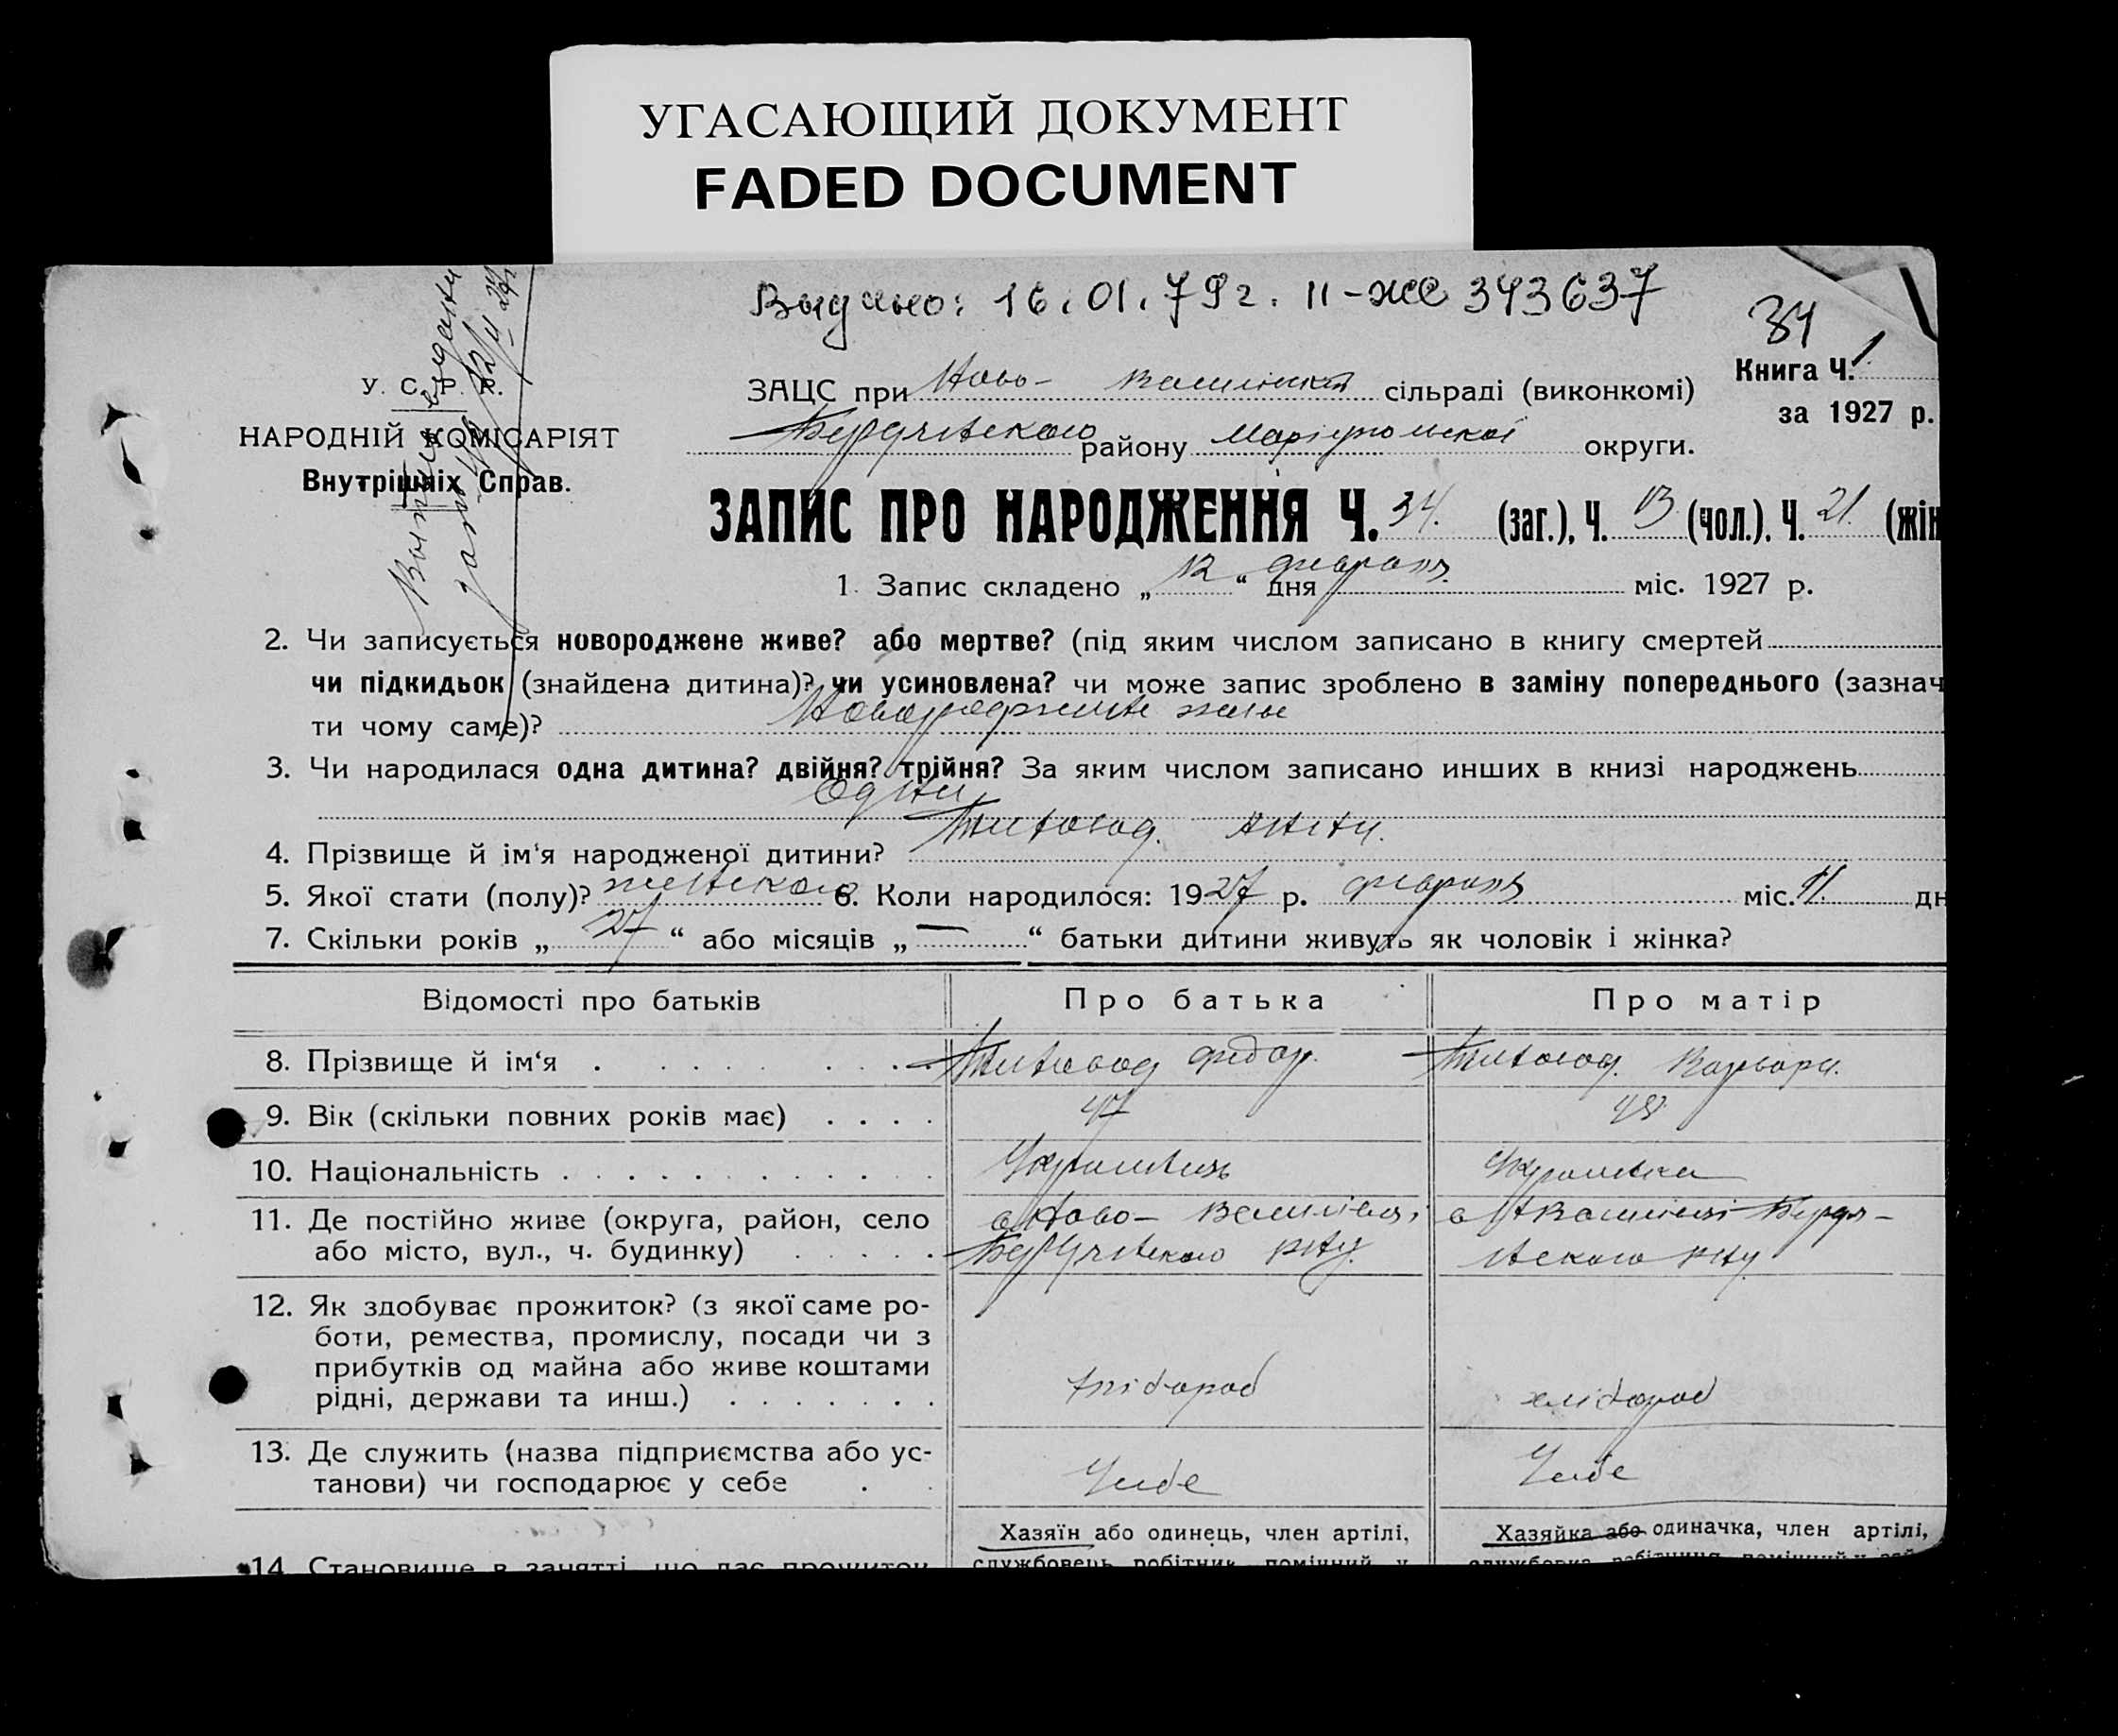 УГАСАЮЩИЙ ДОКУМЕНТ
FADED DOCUMENT
Выдано: 16.01.79г. II-ЖС 343637
34
У. С. Р. Р.
НАРОДНІЙ КОМІСАРІЯТ
Внутрішніх Справ.
Книга Ч. 1
за 1927 р.
ЗАЦС при Ново- сільраді (виконкомі)
району Маріупольскої округи.
ЗАПИС ПРО НАРОДЖЕННЯ Ч. 34. (заг.), Ч. 13 (чол.). Ч. 21. (жін
1. Запис складено „ 12 “ дня февраля міс. 1927 р.
2. Чи записується новороджене живе? або мертве? (під яким числом записано в книгу смертей
чи підкидьок (знайдена дитина)? чи усиновлена? чи може запис зроблено в заміну попереднього (зазнач
ти чому саме)?
3. Чи народилася одна дитина? двійня? трійня? За яким числом записано инших в книзі народжень
Одна
4. Прізвище й ім'я народженої дитини?
5. Якої стати (полу)? 6. Коли народилося: 1927 р. февраля міс. 11. дн
7. Скільки років „ 27 “ або місяців „ — “ батьки дитини живуть як чоловік і жінка?
Відомості про батьків Про батька Про матір
8. Прізвище й ім'я Федор. Варвара.
9. Вік (скільки повних років має) 47
10. Національність Украинець Украинка
11. Де постійно живе (округа, район, село
або місто, вул., ч. будинку)
12. Як здобуває прожиток? (з якої саме ро-
боти, ремества, промислу, посади чи з
прибутків од майна або живе коштами
рідні, держави та инш.) хлібороб хлібороб
13. Де служить (назва підприємства або ус-
танови) чи господарює у себе У себе У себе
Хазяїн або одинець, член артілі, Хазяйка або одиначка, член артілі,
14. Становище в занятті, що дає прожиток службовець робітник, помічний у